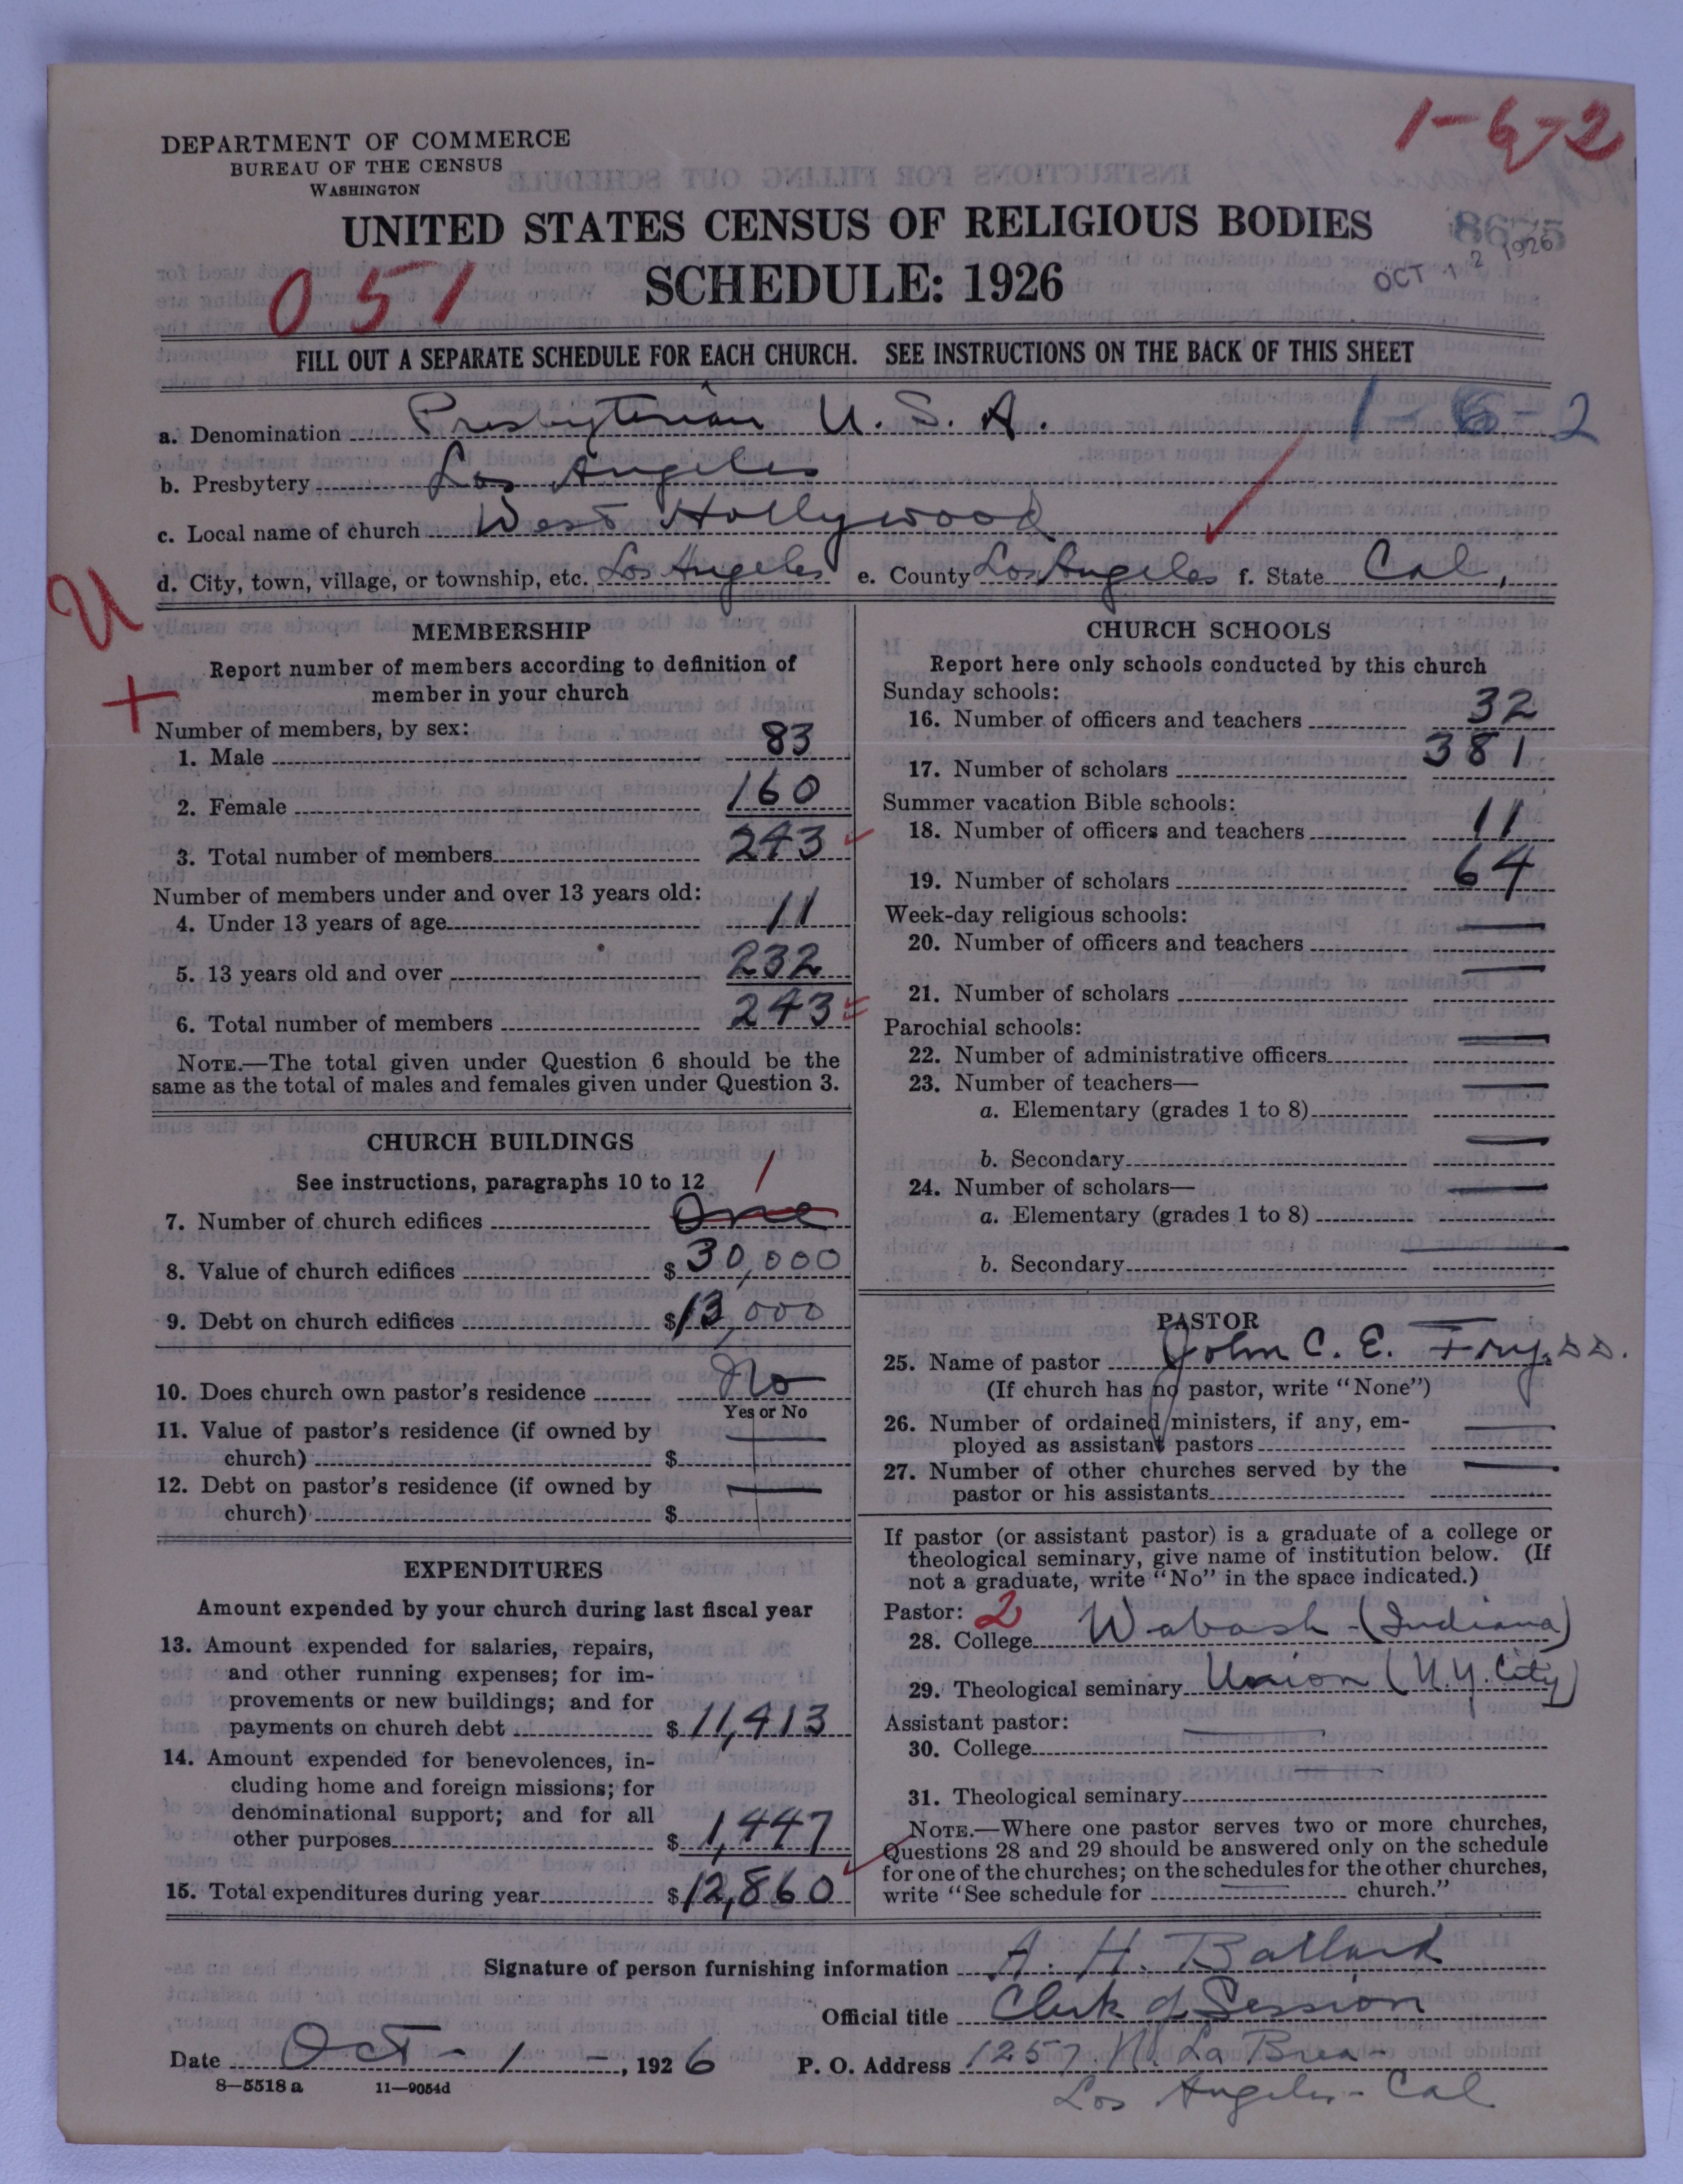 1-6-2
DEPARTMENT OF COMMERCE
BUREAU OF THE CENSUS
WASHINGTON
UNITED STATES CENSUS OF RELIGIOUS BODIES
8675
SCHEDULE: 1926
OCT 12 1926
051
FILL OUT A SEPARATE SCHEDULE FOR EACH CHURCH. SEE INSTRUCTIONS ON THE BACK OF THIS SHEET
a. Denomination Presbyterian U. S. A. 1-6-2
b. Presbytery Los Angeles
c. Local name of church West Hollywood
d. City, town, village, or township, etc. Los Angeles e. County Los Angeles f. State Cal,
U
+
MEMBERSHIP
Report number of members according to definition of
member in your church
Number of members, by sex:
1. Male 83
2. Female 160
3. Total number of members 243
Number of members under and over 13 years old:
4. Under 13 years of age 11
5. 13 years old and over 232
6. Total number of members 243
NOTE.—The total given under Question 6 should be the
same as the total of males and females given under Question 3.
CHURCH BUILDINGS
See instructions, paragraphs 10 to 12
1
7. Number of church edifices One
8. Value of church edifices $30,000
9. Debt on church edifices $13,000
10. Does church own pastor's residence No
Yes or No
11. Value of pastor's residence (if owned by
church) $
12. Debt on pastor's residence (if owned by
church) $
EXPENDITURES
Amount expended by your church during last fiscal year
13. Amount expended for salaries, repairs,
and other running expenses; for im-
provements or new buildings; and for
payments on church debt $11,413
14. Amount expended for benevolences, in-
cluding home and foreign missions; for
denominational support; and for all
other purposes $1,447
15. Total expenditures during year $12,860
CHURCH SCHOOLS
Report here only schools conducted by this church
Sunday schools:
16. Number of officers and teachers 32
17. Number of scholars 381
Summer vacation Bible schools:
18. Number of officers and teachers 11
19. Number of scholars 64
Week-day religious schools:
20. Number of officers and teachers —
21. Number of scholars —
Parochial schools:
22. Number of administrative officers —
23. Number of teachers—
a. Elementary (grades 1 to 8) —
b. Secondary —
24. Number of scholars—
a. Elementary (grades 1 to 8) —
b. Secondary —
PASTOR
25. Name of pastor John C. E. Fry, D.D.
(If church has no pastor, write "None")
26. Number of ordained ministers, if any, em-
ployed as assistant pastors —
27. Number of other churches served by the
pastor or his assistants —
If pastor (or assistant pastor) is a graduate of a college or
theological seminary, give name of institution below. (If
not a graduate, write "No" in the space indicated.)
Pastor: 2
28. College Wabash - (Indiana)
29. Theological seminary Union (N.Y. City)
Assistant pastor:
30. College —
31. Theological seminary —
NOTE.—Where one pastor serves two or more churches,
Questions 28 and 29 should be answered only on the schedule
for one of the churches; on the schedules for the other churches,
write "See schedule for — church."
Signature of person furnishing information A. H. Ballard
Official title Clerk of Session
Date Oct - 1 -, 1926 P. O. Address 1257 N. La Brea -
8—5518 a 11—9054d
Los Angeles - Cal